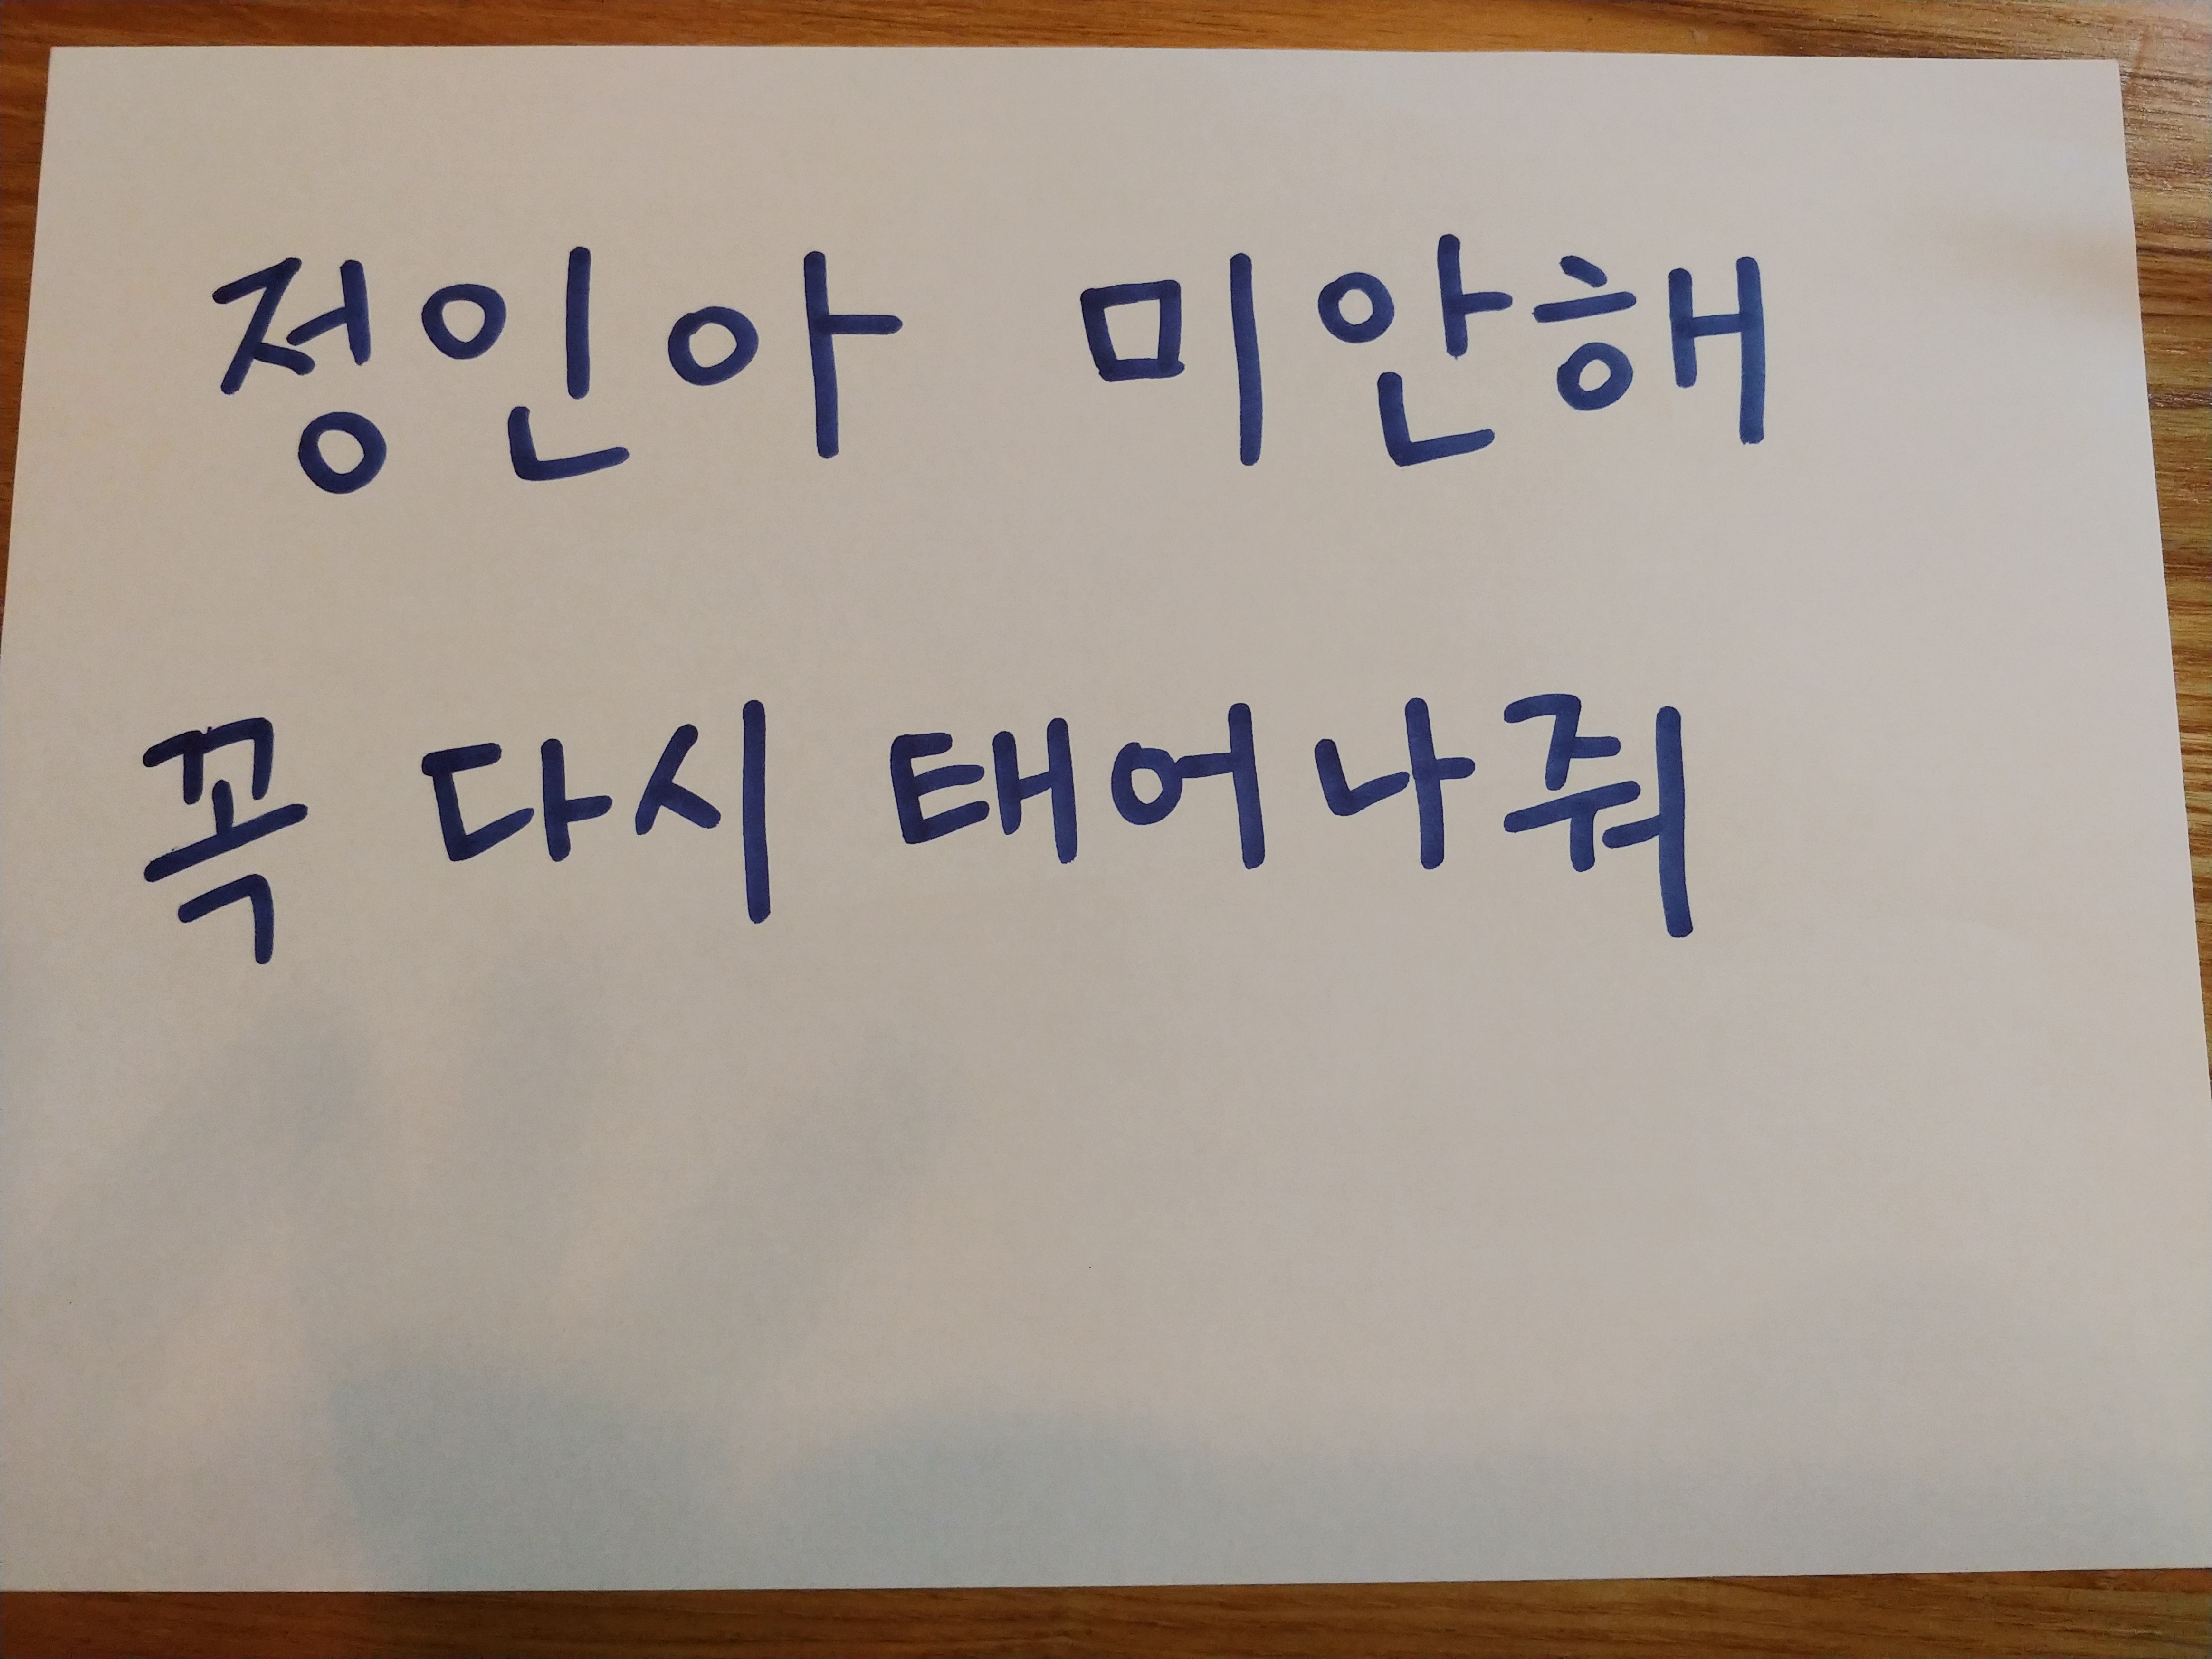 정인아 미안해
꼭 다시 태어나줘